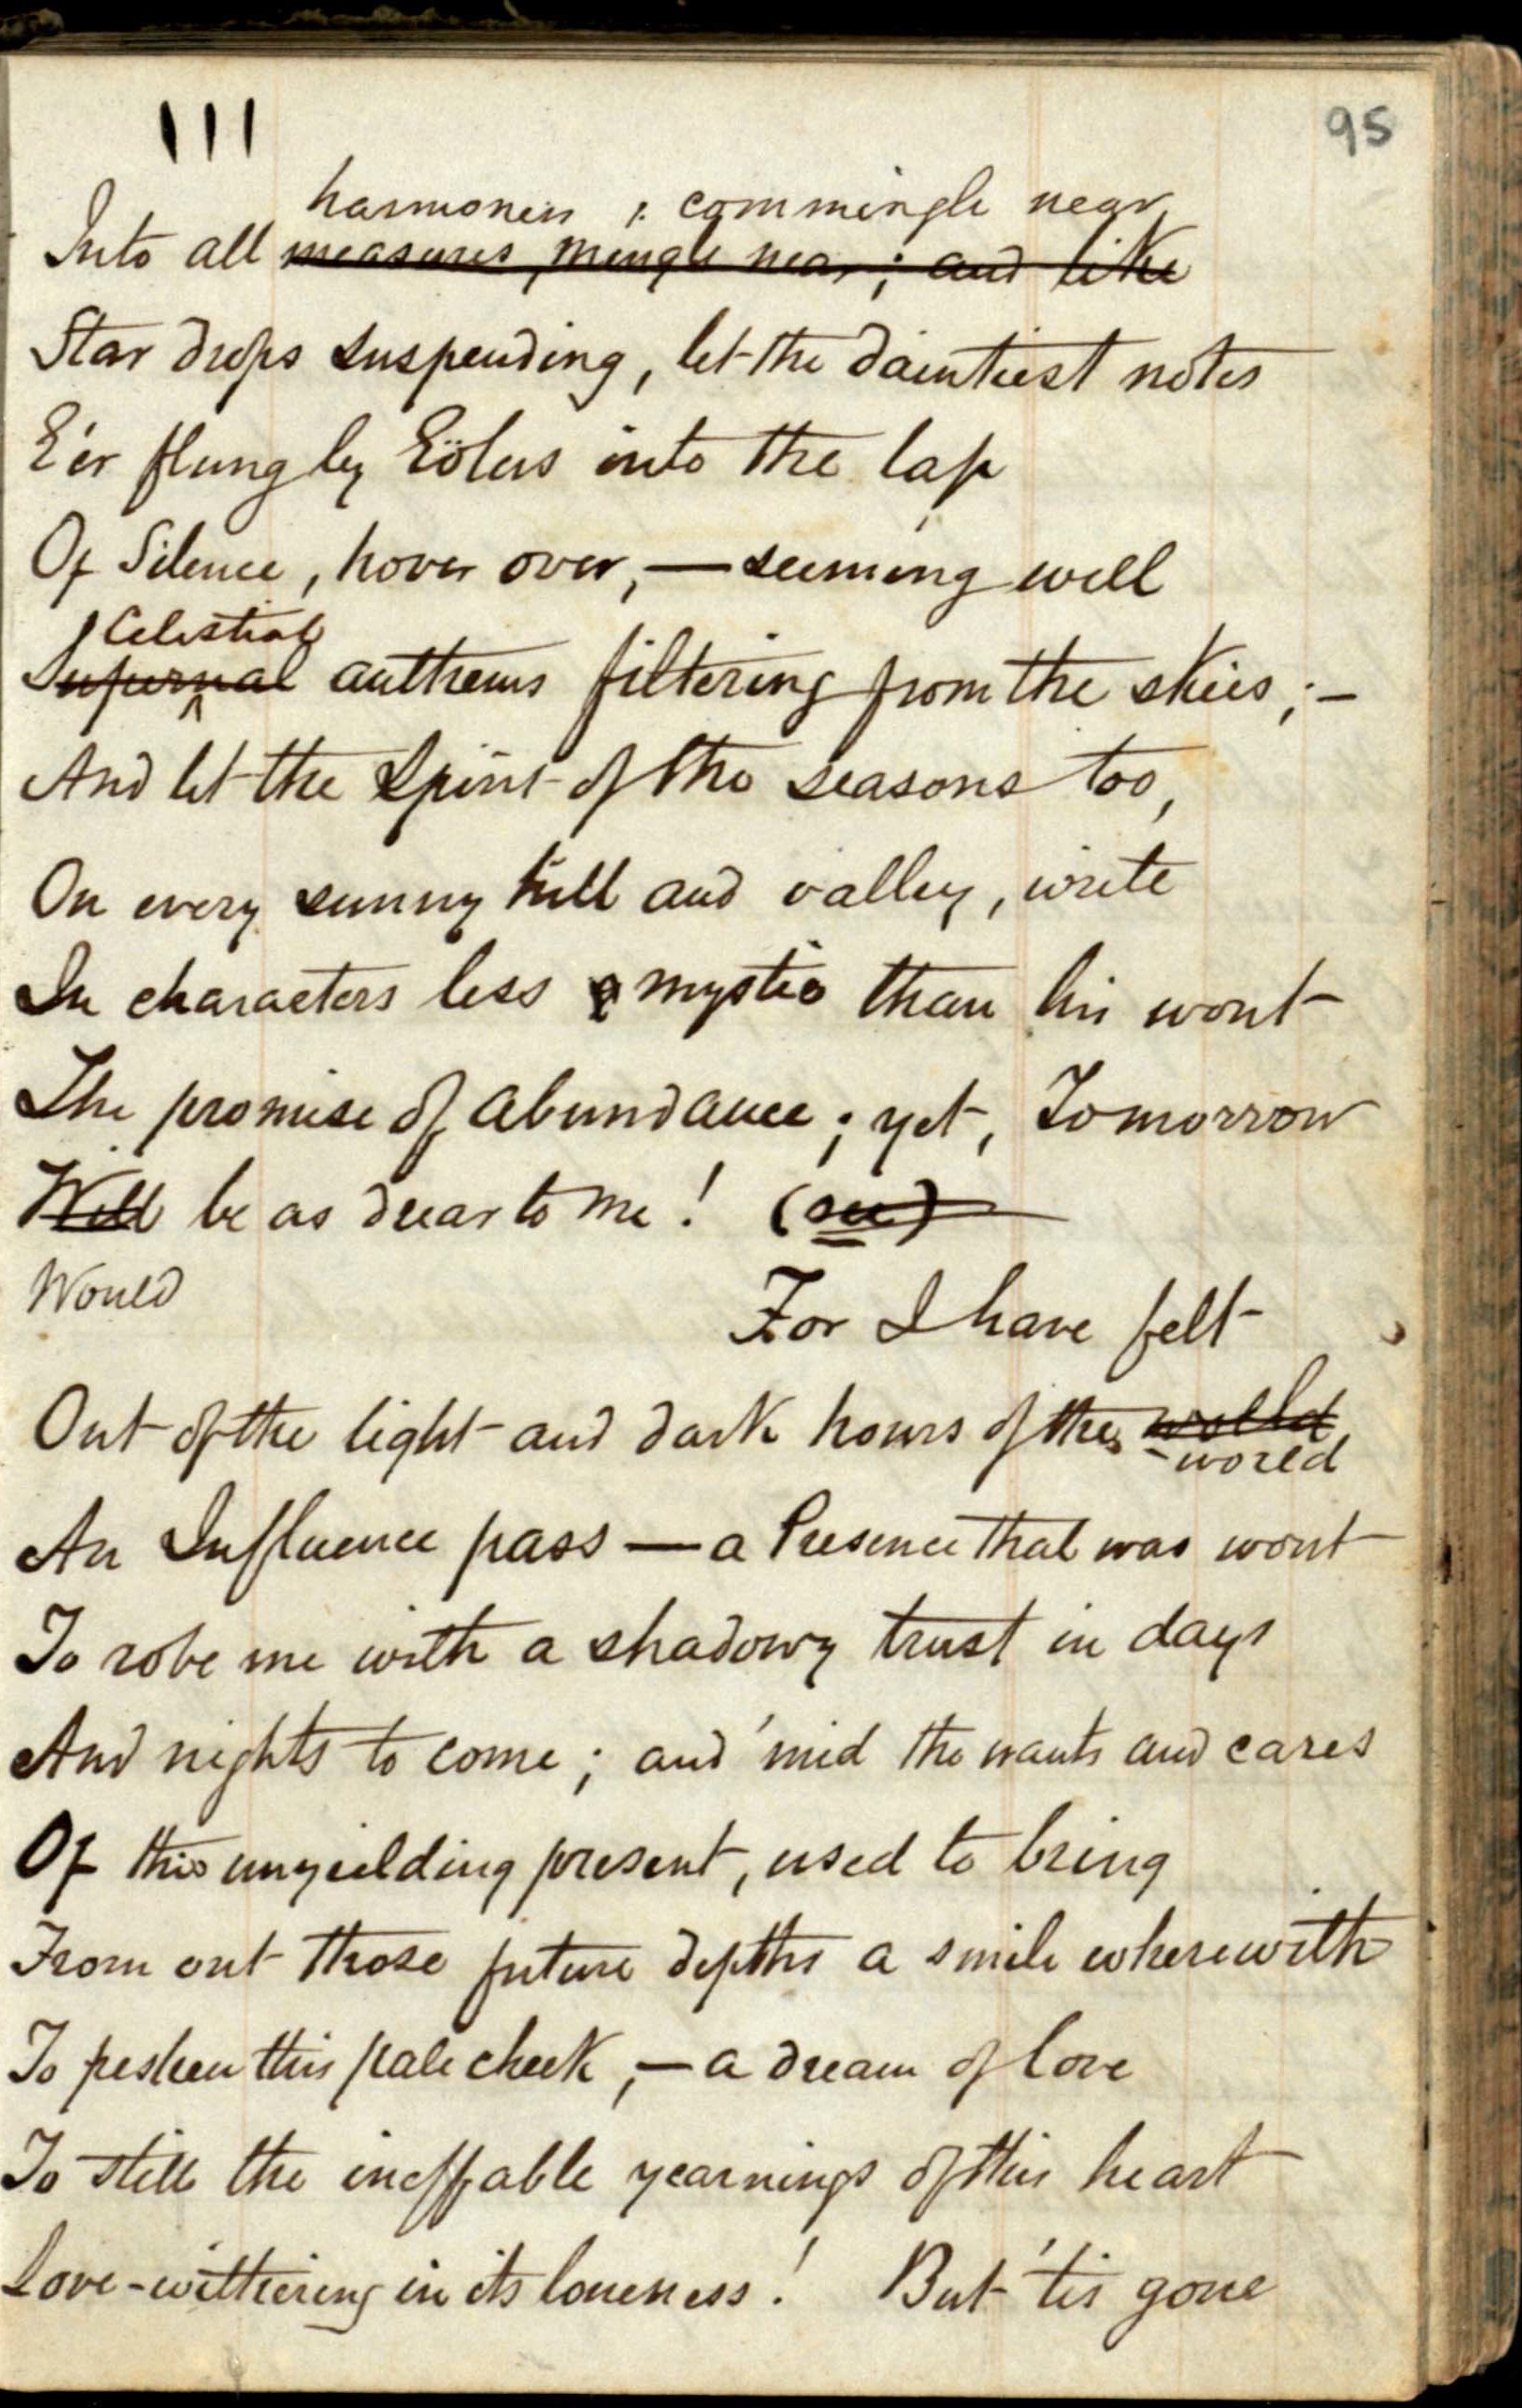 111
95
harmonies ; commingle near,
Into all measures, mingle near; and like
Star drops suspending, let the daintiest notes
E'er flung by Eölus into the lap
Of Silence, hover over, — seeming well
Celestial
Supernal anthems filtering from the skies; —
And let the Spirit of the seasons too,
On every sunny hill and valley, write
In characters less mystic than his wont
The promise of abundance; yet, Tomorrow
Will be as drear to me!
Would
For I have felt
Out of the light and dark hours of the world
world
An Influence pass — a Presence that was wont
To robe me with a shadowy trust in days
And nights to come; and 'mid the wants and cares
Of this unyielding present, used to bring
From out those future depths a smile wherewith
To freshen this pale cheek, — a dream of love
To still the ineffable yearnings of this heart
Love-withering in its loneness! But 'tis gone